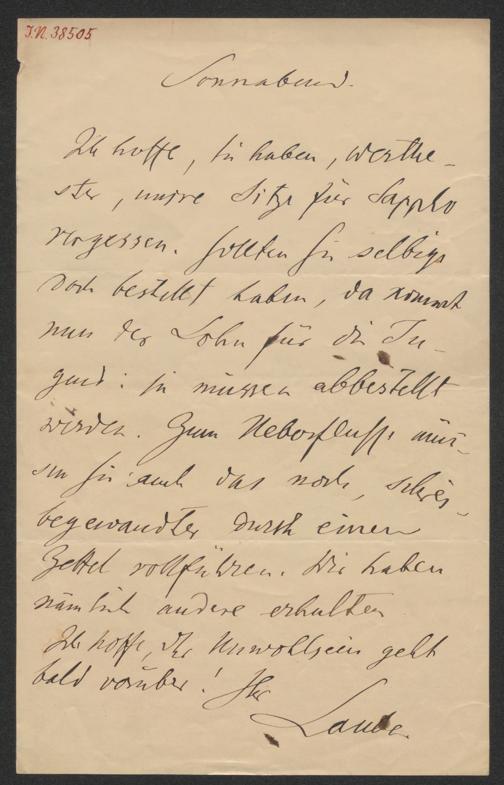 J.N. 38505
Sonnabend.
Ich hoffe, Sie haben, werthe-
ster, unsre Sitze für Sappho
vergessen. Sollten Sie selbige
doch bestellt haben, da kommt
nun der Lohn für die Tu-
gend: sie müssen abbestellt
werden. Zum Ueberfluss müs-
sen Sie auch das noch, schrei-
begewandter durch einen
Zettel vollführen. Wir haben
nämlich andere erhalten
Ich hoffe, Ihr Unwohlsein geht
bald vorüber! Ihr
Laube.